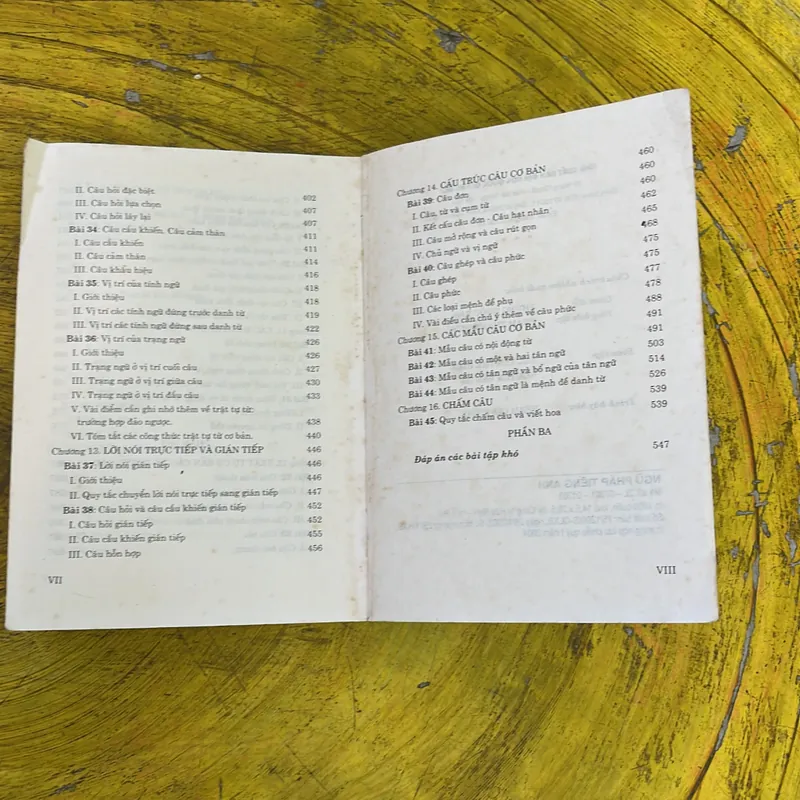 II. Câu hỏi đặc biệt. 402
III. Câu hỏi lựa chọn 407
IV. Câu hỏi láy lại 407
Bài 34: Câu cầu khiến. Câu cảm thán 411
I. Câu cầu khiến 411
II. Câu cảm thán 414
III. Câu khẩu hiệu 416
Bài 35: Vị trí của tính ngữ 418
I. Giới thiệu 418
II. Vị trí các tính ngữ đứng trước danh từ 419
III. Vị trí các tính ngữ đứng sau danh từ 422
Bài 36: Vị trí của trạng ngữ 426
I. Giới thiệu 426
II. Trạng ngữ ở vị trí cuối câu 427
III. Trạng ngữ ở vị trí giữa câu 430
IV. Trạng ngữ ở vị trí đầu câu 433
V. Vài điểm cần ghi nhớ thêm về trật tự từ:
trường hợp đảo ngược. 438
VI. Tóm tắt các công thức trật tự từ cơ bản. 440
Chương 13. LỜI NÓI TRỰC TIẾP VÀ GIÁN TIẾP 446
Bài 37: Lời nói gián tiếp 446
I. Giới thiệu 446
II. Quy tắc chuyển lời nói trực tiếp sang gián tiếp 447
Bài 38: Câu hỏi và câu cầu khiến gián tiếp 452
I. Câu hỏi gián tiếp 452
II. Câu cầu khiến gián tiếp 455
III. Câu hỗn hợp 456
VII
Chương 14. CẤU TRÚC CÂU CƠ BẢN 460
Bài 39: Câu đơn 460
I. Câu, từ và cụm từ 460
II. Kết cấu câu đơn - Câu hạt nhân 462
III. Câu mở rộng và câu rút gọn 465
IV. Chủ ngữ và vị ngữ 468
Bài 40: Câu ghép và câu phức 475
I. Câu ghép 475
II. Câu phức 477
III. Các loại mệnh đề phụ 478
IV. Vài điều cần chú ý thêm về câu phức 488
Chương 15. CÁC MẪU CÂU CƠ BẢN 491
Bài 41: Mẫu câu có nội động từ 491
Bài 42: Mẫu câu có một và hai tân ngữ 503
Bài 43: Mẫu câu có tân ngữ và bổ ngữ của tân ngữ 514
Bài 44: Mẫu câu có tân ngữ là mệnh đề danh từ 526
Chương 16. CHẤM CÂU 539
Bài 45: Quy tắc chấm câu và viết hoa 539
PHẦN BA
Đáp án các bài tập khó 547
VIII